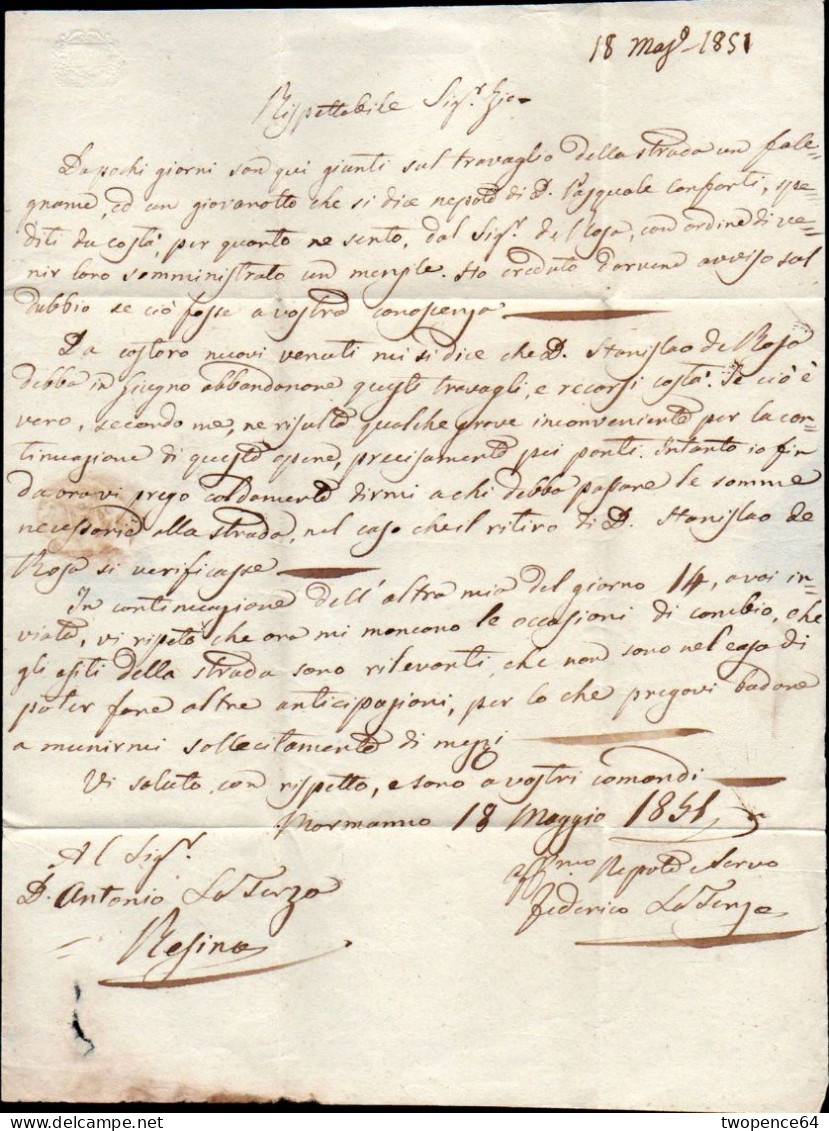 18 Mag.o 1851
Rispettabile Sig.r Zio
Da pochi giorni son qui giunti sul travaglio della strada un fale=
gname, ed un giovanotto che si dice nepote di D. Pasquale Conforti, spe=
diti da costà, per quanto ne sento, dal Sig.r de Rosa, con ordine di ve=
nir loro somministrato un mensile. Ho creduto darvene avviso sul
dubbio se ciò fosse a vostra conoscenza
Da costoro nuovi venuti mi si dice che D. Stanislao de Rosa
debba in Giugno abbandonare questi travagli, e recarsi costà. Se ciò è
vero, secondo me, ne risulta qualche grave inconveniente per la con=
tinuazione di queste opere, precisamente pei ponti. Intanto io fin
da ora vi prego caldamente dirmi a chi debba passare le somme
necessarie alla strada, nel caso che il ritiro di D. Stanislao de
Rosa si verificasse
In continuazione dell'altra mia del giorno 14, a voi in=
viata, vi ripeto che ora mi mancono le occasioni di cambio, che
gli esiti della strada sono rilevanti, che non sono nel caso di
poter fare altre anticipazioni, per lo che pregovi badare
a munirmi sollecitamente di mezzi
Vi saluto con rispetto, e sono a vostri comandi
Mormanno 18 Maggio 1851
Al Sig.r
D. Antonio La Terza
Resina
Aff.mo Nepote e Servo
Federico La Terza
twopence64